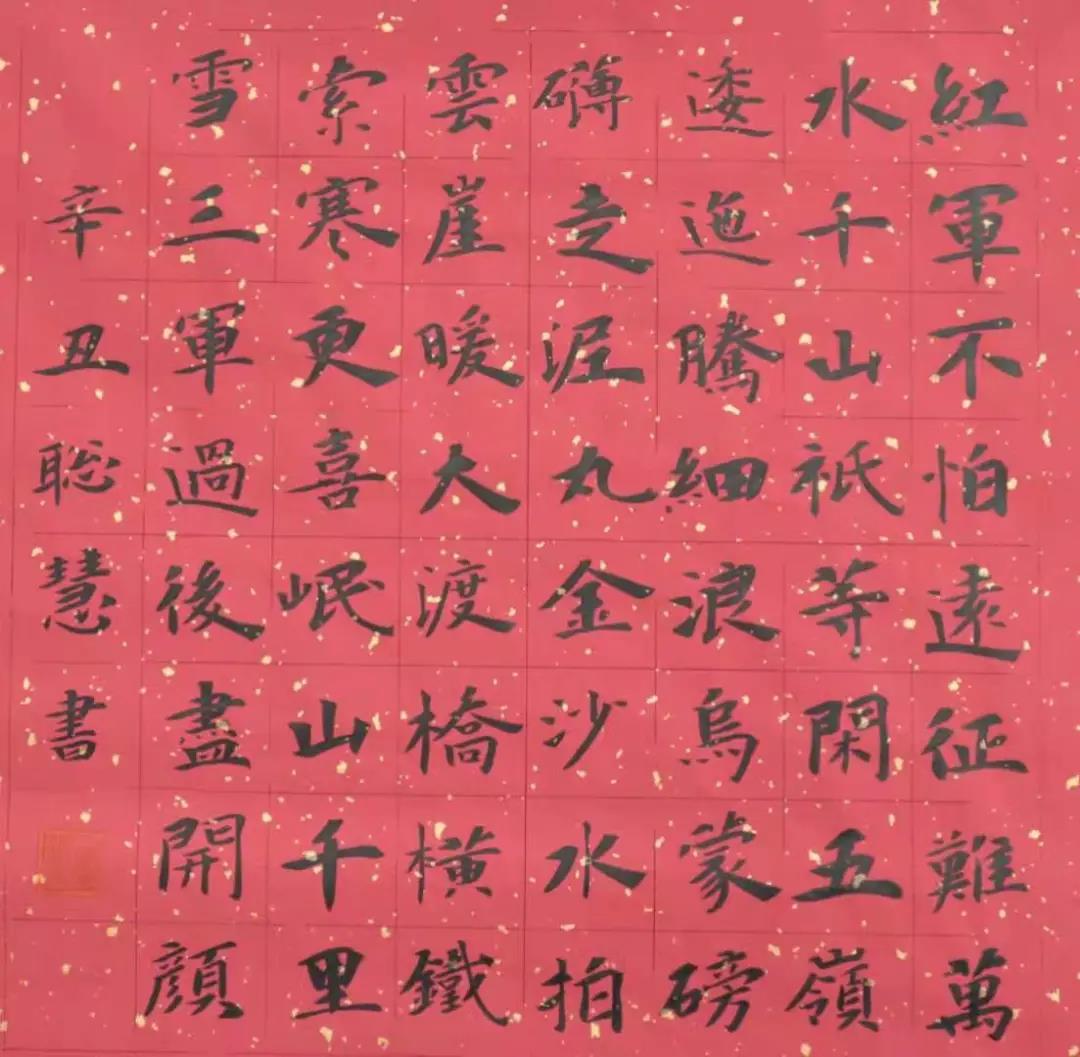 紅軍不怕遠征難萬
水千山祇等閑五嶺
逶迤騰細浪烏蒙磅
礴走泥丸金沙水拍
雲崖暖大渡橋橫鐵
索寒更喜岷山千里
雪三軍過後盡開顏
辛丑聡慧書